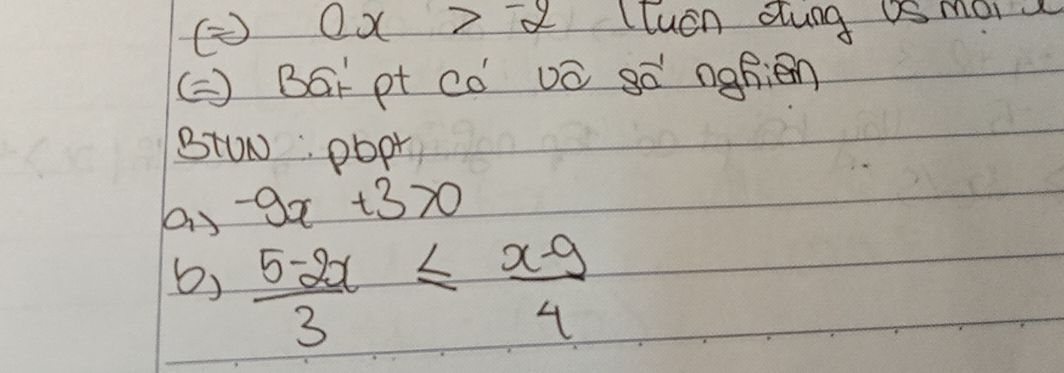 (=) 0x > -2 (luôn đúng vs mọi x
(=) Bất pt có vô số nghiệm
BTVN: pbpt,
a, -9x +3>0
b, 5-2x/3 ≤ x-9/4